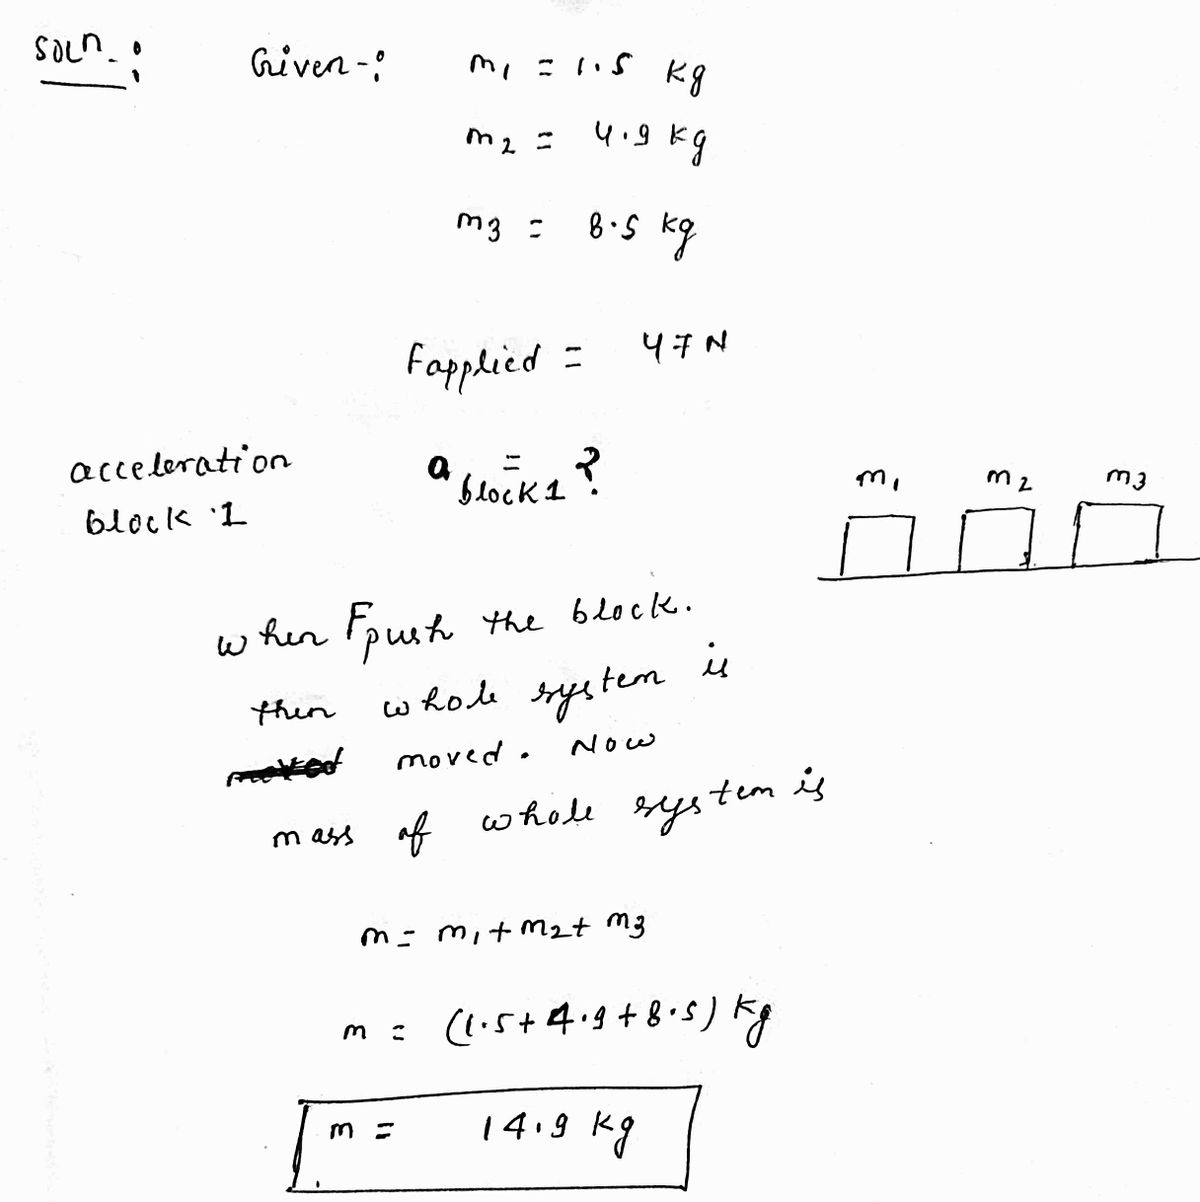 Soln-:
Given-: m1 = 1.5 kg
m2 = 4.9 kg
m3 = 8.5 kg
Fapplied = 47 N
acceleration
block 1
a block1 = ?
m1 m2 m3
when Fpush the block.
then whole system is
moved. Now
mass of whole system is
m = m1 + m2 + m3
m = (1.5 + 4.9 + 8.5) kg
m = 14.9 kg